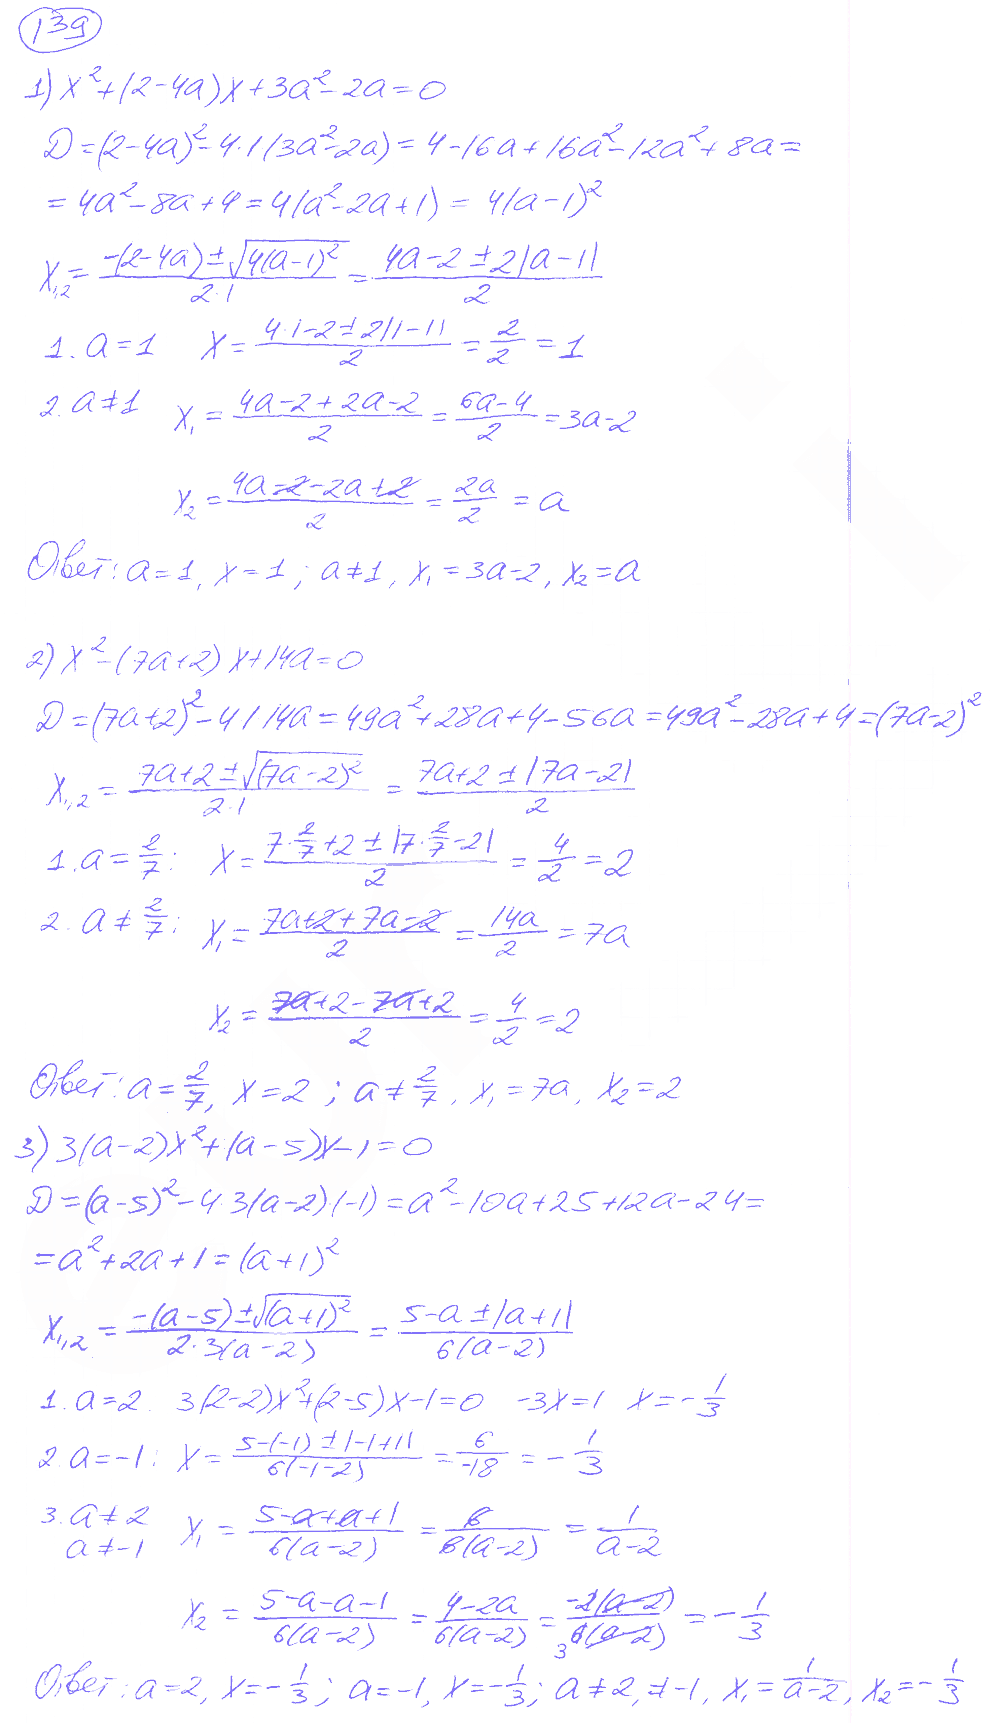 139
1) x² + (2 - 4a)x + 3a² - 2a = 0
D = (2 - 4a)² - 4·1(3a² - 2a) = 4 - 16a + 16a² - 12a² + 8a =
= 4a² - 8a + 4 = 4(a² - 2a + 1) = 4(a - 1)²
x₁,₂ = (-(2 - 4a) ± √(4(a - 1)²))/(2·1) = (4a - 2 ± 2|a - 1|)/2
1. a = 1 x = (4·1 - 2 ± 2|1 - 1|)/2 = 2/2 = 1
2. a ≠ 1 x₁ = (4a - 2 + 2a - 2)/2 = (6a - 4)/2 = 3a - 2
x₂ = (4a - 2 - 2a + 2)/2 = 2a/2 = a
Ответ: a = 1, x = 1; a ≠ 1, x₁ = 3a - 2, x₂ = a
2) x² - (7a + 2)x + 14a = 0
D = (7a + 2)² - 4·14a = 49a² + 28a + 4 - 56a = 49a² - 28a + 4 = (7a - 2)²
x₁,₂ = (7a + 2 ± √((7a - 2)²))/(2·1) = (7a + 2 ± |7a - 2|)/2
1. a = 2/7: x = (7·2/7 + 2 ± |7·2/7 - 2|)/2 = 4/2 = 2
2. a ≠ 2/7: x₁ = (7a + 2 + 7a - 2)/2 = 14a/2 = 7a
x₂ = (7a + 2 - 7a + 2)/2 = 4/2 = 2
Ответ: a = 2/7, x = 2; a ≠ 2/7, x₁ = 7a, x₂ = 2
3) 3(a - 2)x² + (a - 5)x - 1 = 0
D = (a - 5)² - 4·3(a - 2)(-1) = a² - 10a + 25 + 12a - 24 =
= a² + 2a + 1 = (a + 1)²
x₁,₂ = (-(a - 5) ± √((a + 1)²))/(2·3(a - 2)) = (5 - a ± |a + 1|)/(6(a - 2))
1. a = 2. 3(2 - 2)x² + (2 - 5)x - 1 = 0 -3x = 1 x = -1/3
2. a = -1: x = (5 - (-1) ± |-1 + 1|)/(6(-1 - 2)) = 6/(-18) = -1/3
3. a ≠ 2 a ≠ -1 x₁ = (5 - a + a + 1)/(6(a - 2)) = 6/(6(a - 2)) = 1/(a - 2)
x₂ = (5 - a - a - 1)/(6(a - 2)) = (4 - 2a)/(6(a - 2)) = (-2(a - 2))/(6(a - 2)) 3 = -1/3
Ответ: a = 2, x = -1/3; a = -1, x = -1/3; a ≠ 2, ≠ -1, x₁ = 1/(a - 2), x₂ = -1/3